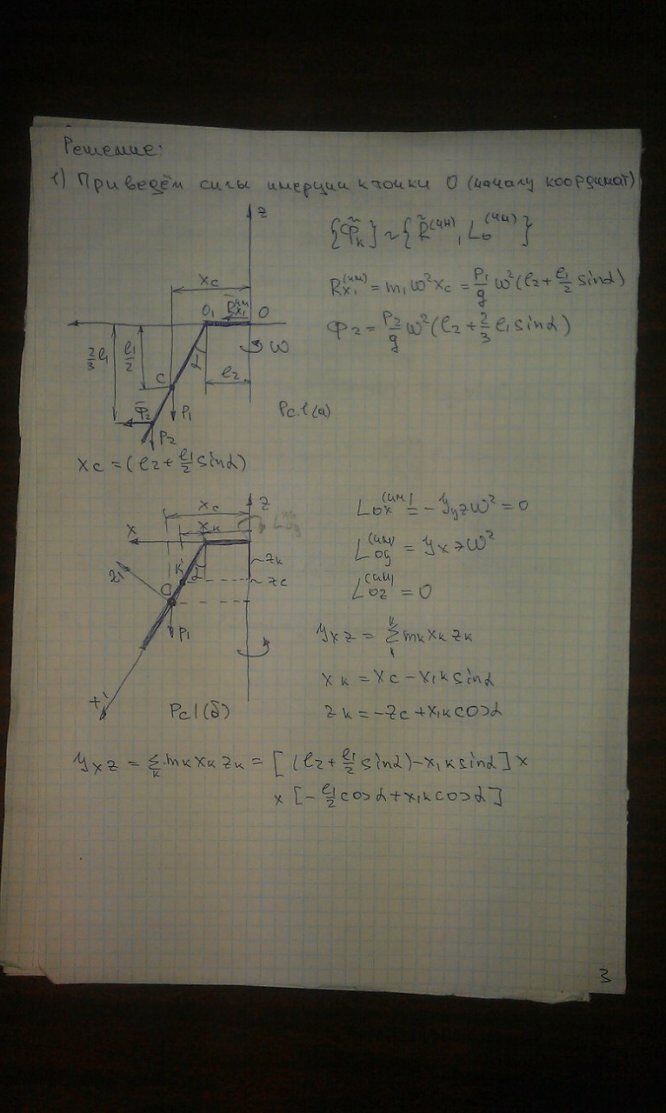 Решение:
1) Приведём силы инерции к точки О (началу координат)
{Φ̃k} ~ {R̃^(ин), Lo^(ин)}
Rx1^(ин) = m1ω²xc = P1/g ω²(l2 + l1/2 sinα)
Φ2 = P2/g ω²(l2 + 2/3 l1 sinα)
z
xc
O1 Rx1^ин O
2/3 l1 l1/2 α ω
l2
C
Φ2 P1
P2
Рс.1(а)
xc = (l2 + l1/2 sinα)
xc z
xк
x
zк
К α
zc
C
P1
Рс1(б)
Lox^(ин) = -Yyzω² = 0
Loy^(ин) = Yxzω²
Loz^(ин) = 0
Yxz = Σ mк xк zк
xк = xc - x1к sinα
zк = -zc + x1к cosα
Yxz = Σк mк xк zк = [(l2 + l1/2 sinα) - x1к sinα] x
x [-l1/2 cosα + x1к cosα]
3